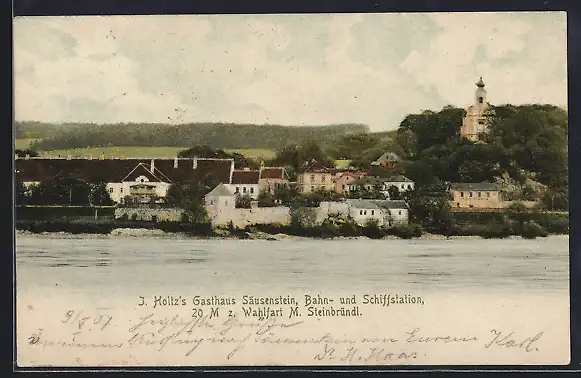 J. Holtz's Gasthaus Säusenstein, Bahn- und Schiffstation,
20 M z. Wahlfart M. Steinbründl.
9/5 07 Herzlichste Grüße
von Eurem Karl.
Dr. H. Haas